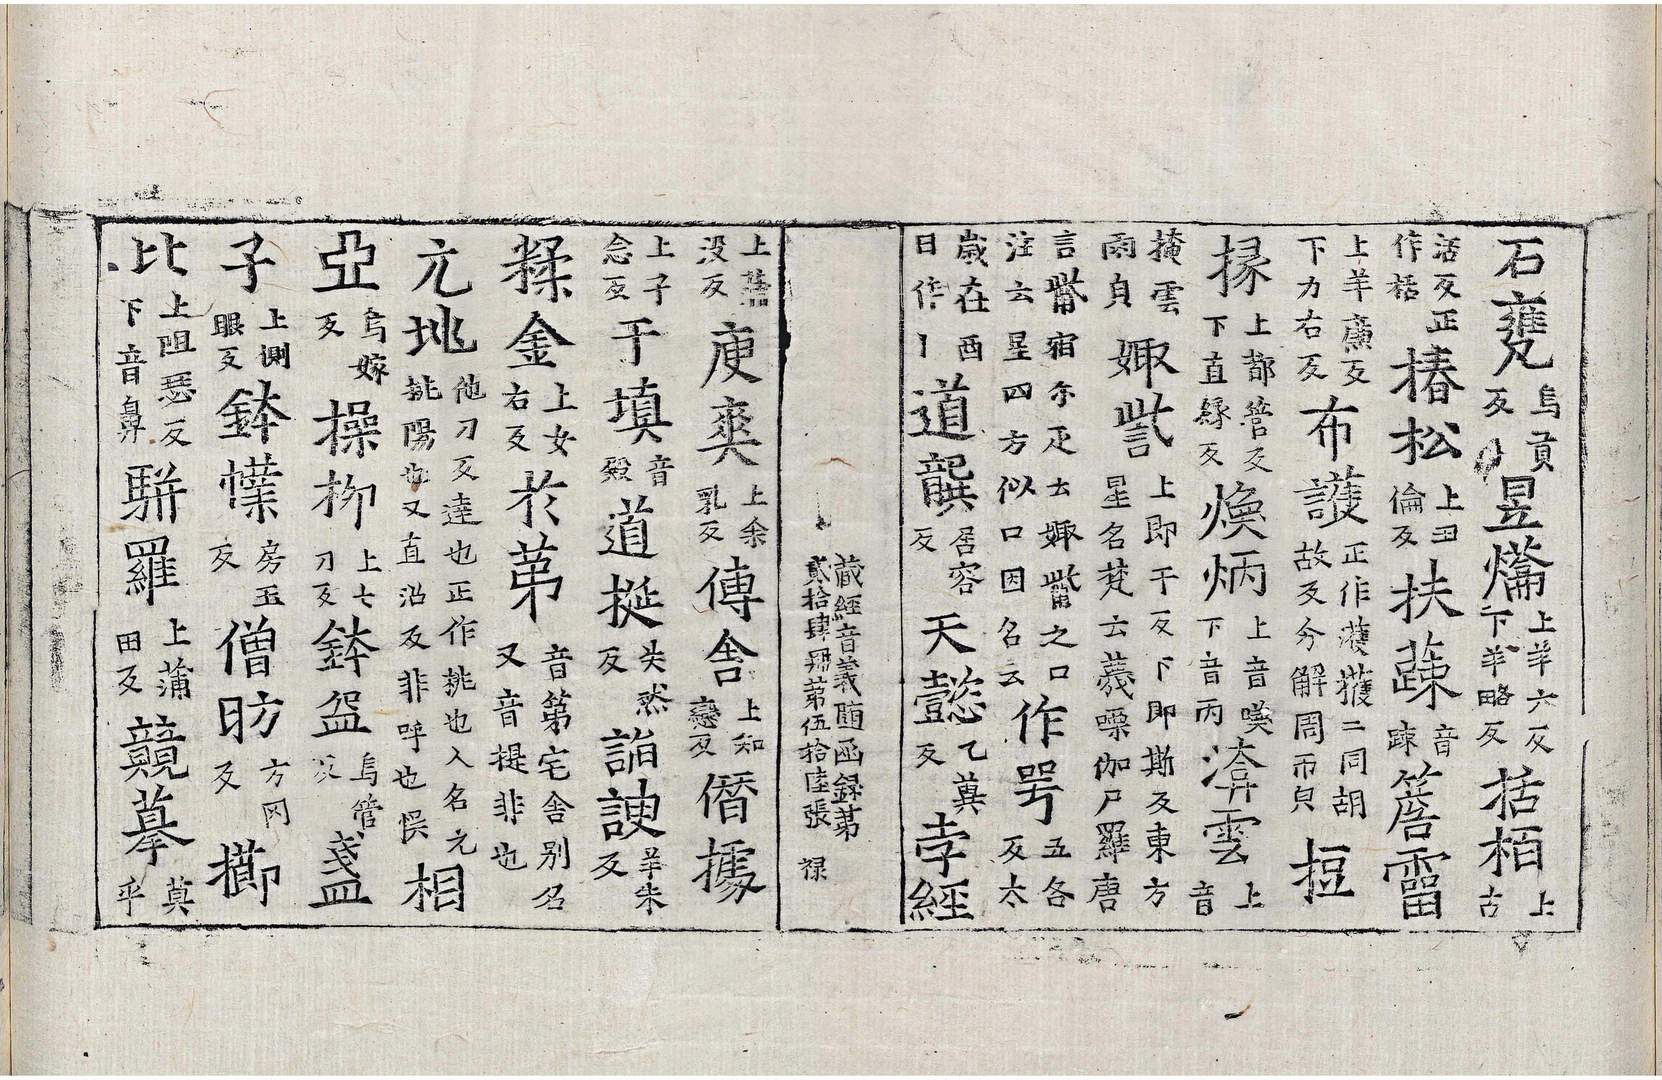 石甕烏貢反昱爚上羊六反下羊略反括栢上古
活反正作栝椿松上丑倫反扶蔬音踈簷霤
上羊廉反下力右反布護正作濩擭二同胡故反分解周帀皃𢭏
掾上都管反下直縁反煥炳上音喚下音丙渰雲上音
掩雲雨皃娵訾上即于反下即斯反東方星名梵云蕟㗚伽尸羅唐
言觜宿尒疋云娵觜之口注云星四方似口因名云作咢五各反太
歲在酉曰作道龔居容反天懿乙冀反孛經
藏經音義随函録第貳拾肆冊第伍拾陸張 禄
上蒲没反庾爽上余乳反傳舍上知戀反僭據
上子念反于填音殿道挻失然反諂諛羊朱反
糅金上女右反於苐音第宅舍别名又音提非也
亢㧌他刀反達也正作挑也人名元挑陽也又直沼反非呼也悮相
亞烏嫁反操枊上七刀反鉢盌烏管反盞盌
子上側眼反鉢幞房玉反僧昉方冈反擳
比上阻瑟反下音鼻駢羅上蒲田反競摹莫乎